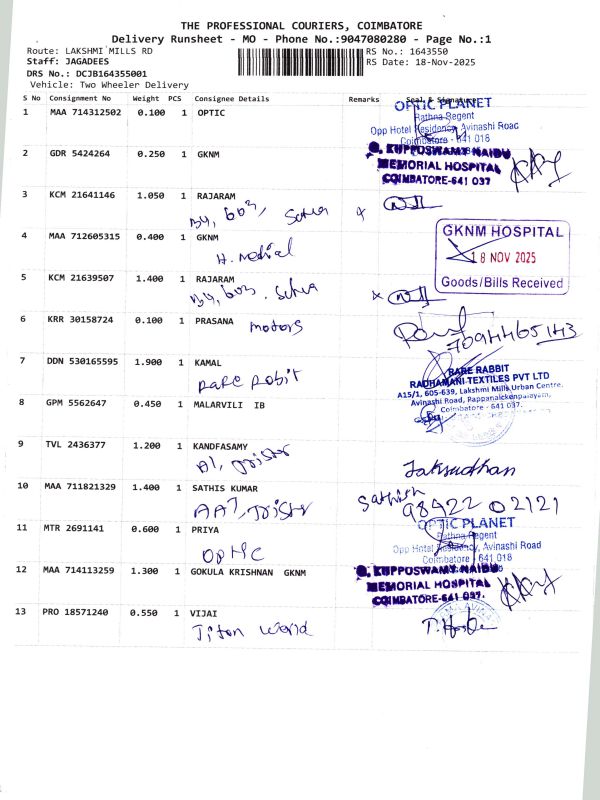 THE PROFESSIONAL COURIERS, COIMBATORE
Delivery Runsheet - MO - Phone No.:9047080280 - Page No.:1
Route: LAKSHMI MILLS RD
RS No.: 1643550
Staff: JAGADEES
RS Date: 18-Nov-2025
DRS No.: DCJB164355001
Vehicle: Two Wheeler Delivery
S No Consignment No Weight PCS Consignee Details Remarks Seal & Signature
1 MAA 714312502 0.100 1 OPTIC
OPTIC PLANET
Rathna Regent
Opp Hotel Residency, Avinashi Road
Coimbatore - 641 018
2 GDR 5424264 0.250 1 GKNM
G. KUPPUSWAMY NAIDU
MEMORIAL HOSPITAL
COIMBATORE-641 037
3 KCM 21641146 1.050 1 RAJARAM
4 MAA 712605315 0.400 1 GKNM
H. Medical
GKNM HOSPITAL
18 NOV 2025
Goods/Bills Received
5 KCM 21639507 1.400 1 RAJARAM
6 KRR 30158724 0.100 1 PRASANA motors
7 DDN 530165595 1.900 1 KAMAL
Rare Robit
RARE RABBIT
RADHAMANI TEXTILES PVT LTD
A15/1, 605-639, Lakshmi Mills Urban Centre,
Avinashi Road, Pappanaickenpalayam,
Coimbatore - 641 037.
8 GPM 5562647 0.450 1 MALARVILI IB
9 TVL 2436377 1.200 1 KANDFASAMY
10 MAA 711821329 1.400 1 SATHIS KUMAR
Sathish
98422 02121
11 MTR 2691141 0.600 1 PRIYA
Optic
OPTIC PLANET
Rathna Regent
Opp Hotel Residency, Avinashi Road
Coimbatore - 641 018
12 MAA 714113259 1.300 1 GOKULA KRISHNAN GKNM
G. KUPPUSWAMY NAIDU
MEMORIAL HOSPITAL
COIMBATORE-641 037.
13 PRO 18571240 0.550 1 VIJAI
Titan World